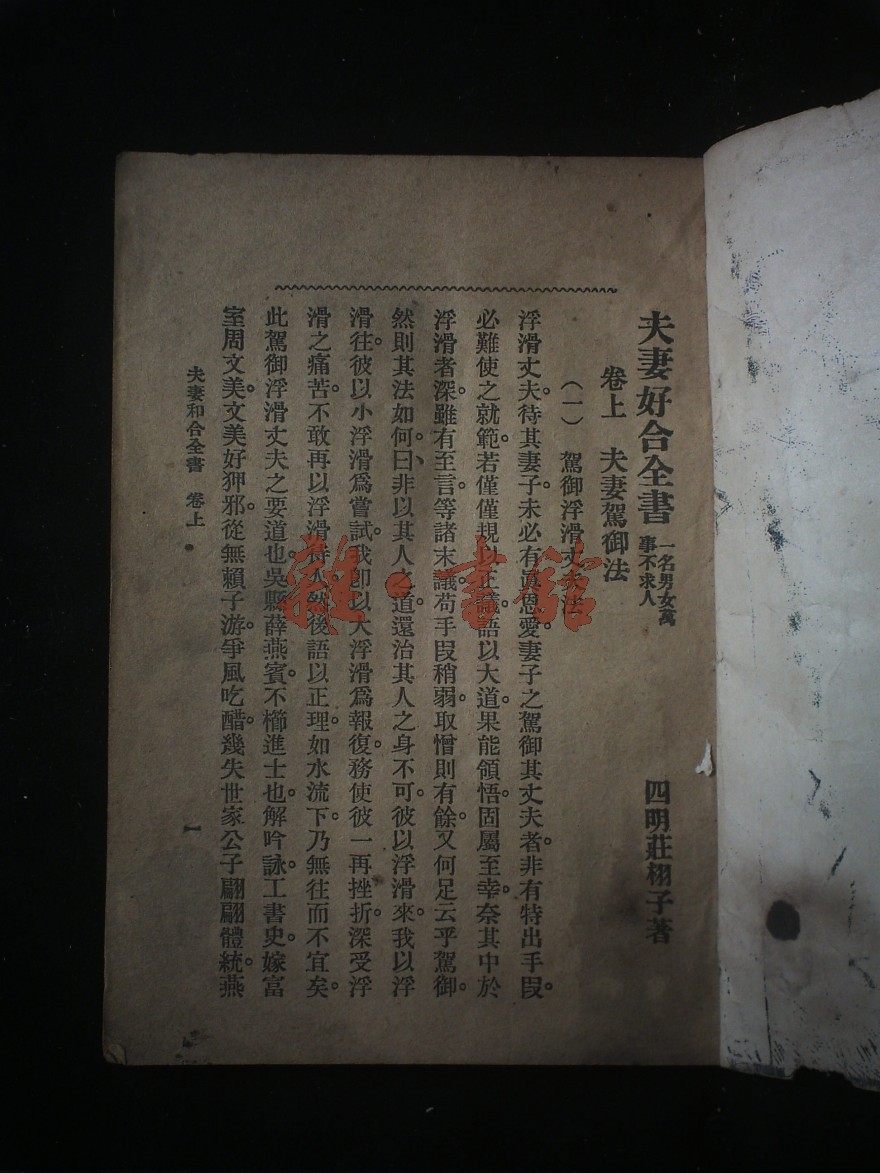 夫妻好合全書 一名男女萬
事不求人
四明莊栩子著
卷上 夫妻駕御法
（一） 駕御浮滑丈夫法
浮滑丈夫。待其妻子。未必有眞恩愛。妻子之駕御其丈夫者。非有特出手段。
必難使之就範。若僅僅規以正議。語以大道。果能領悟。固屬至幸。奈其中於
浮滑者深。雖有至言。等諸末議。苟手段稍弱。取憎則有餘。又何足云乎駕御。
然則其法如何。曰、非以其人之道。還治其人之身不可。彼以浮滑來。我以浮
滑往。彼以小浮滑爲嘗試。我卽以大浮滑爲報復。務使彼一再挫折。深受浮
滑之痛苦。不敢再以浮滑待人。然後語以正理。如水流下。乃無往而不宜矣。
此駕御浮滑丈夫之要道也。吳縣薛燕賓。不櫛進士也。解吟詠。工書史。嫁富
室周文美。文美好狎邪。從無賴子游。爭風吃醋。幾失世家公子翩翩體統。燕
夫妻和合全書 卷上
一
雜·書館